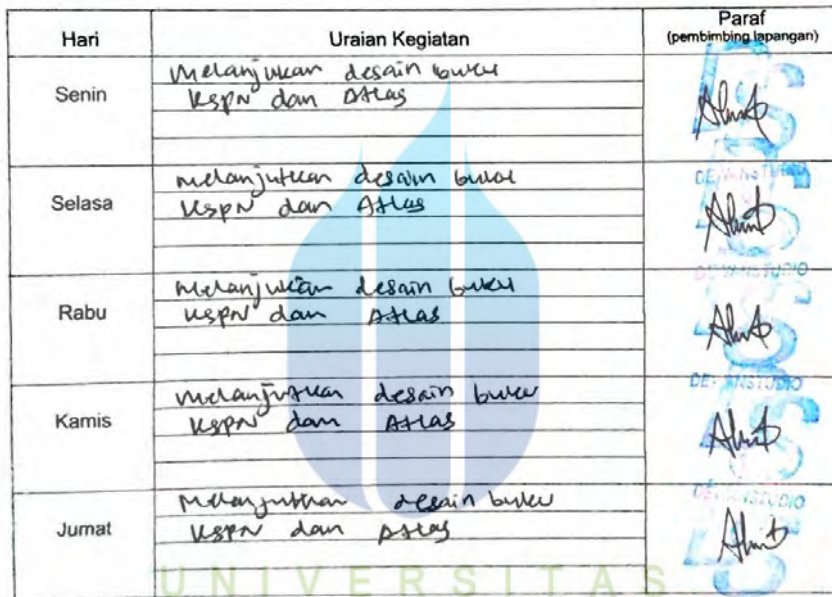 Hari Uraian Kegiatan Paraf
(pembimbing lapangan)
Senin
Melanjukan desain buku
KSPN dan Atlas
Selasa
melanjutkan desain buku
KSPN dan Atlas
DEWANSTUDIO
Rabu
melanjukan desain buku
KSPN dan Atlas
DEWANSTUDIO
Kamis
melanjutkan desain buku
KSPN dan Atlas
DEWANSTUDIO
Jumat
Melanjutkan desain buku
KSPN dan Atlas
DEWANSTUDIO
UNIVERSITAS